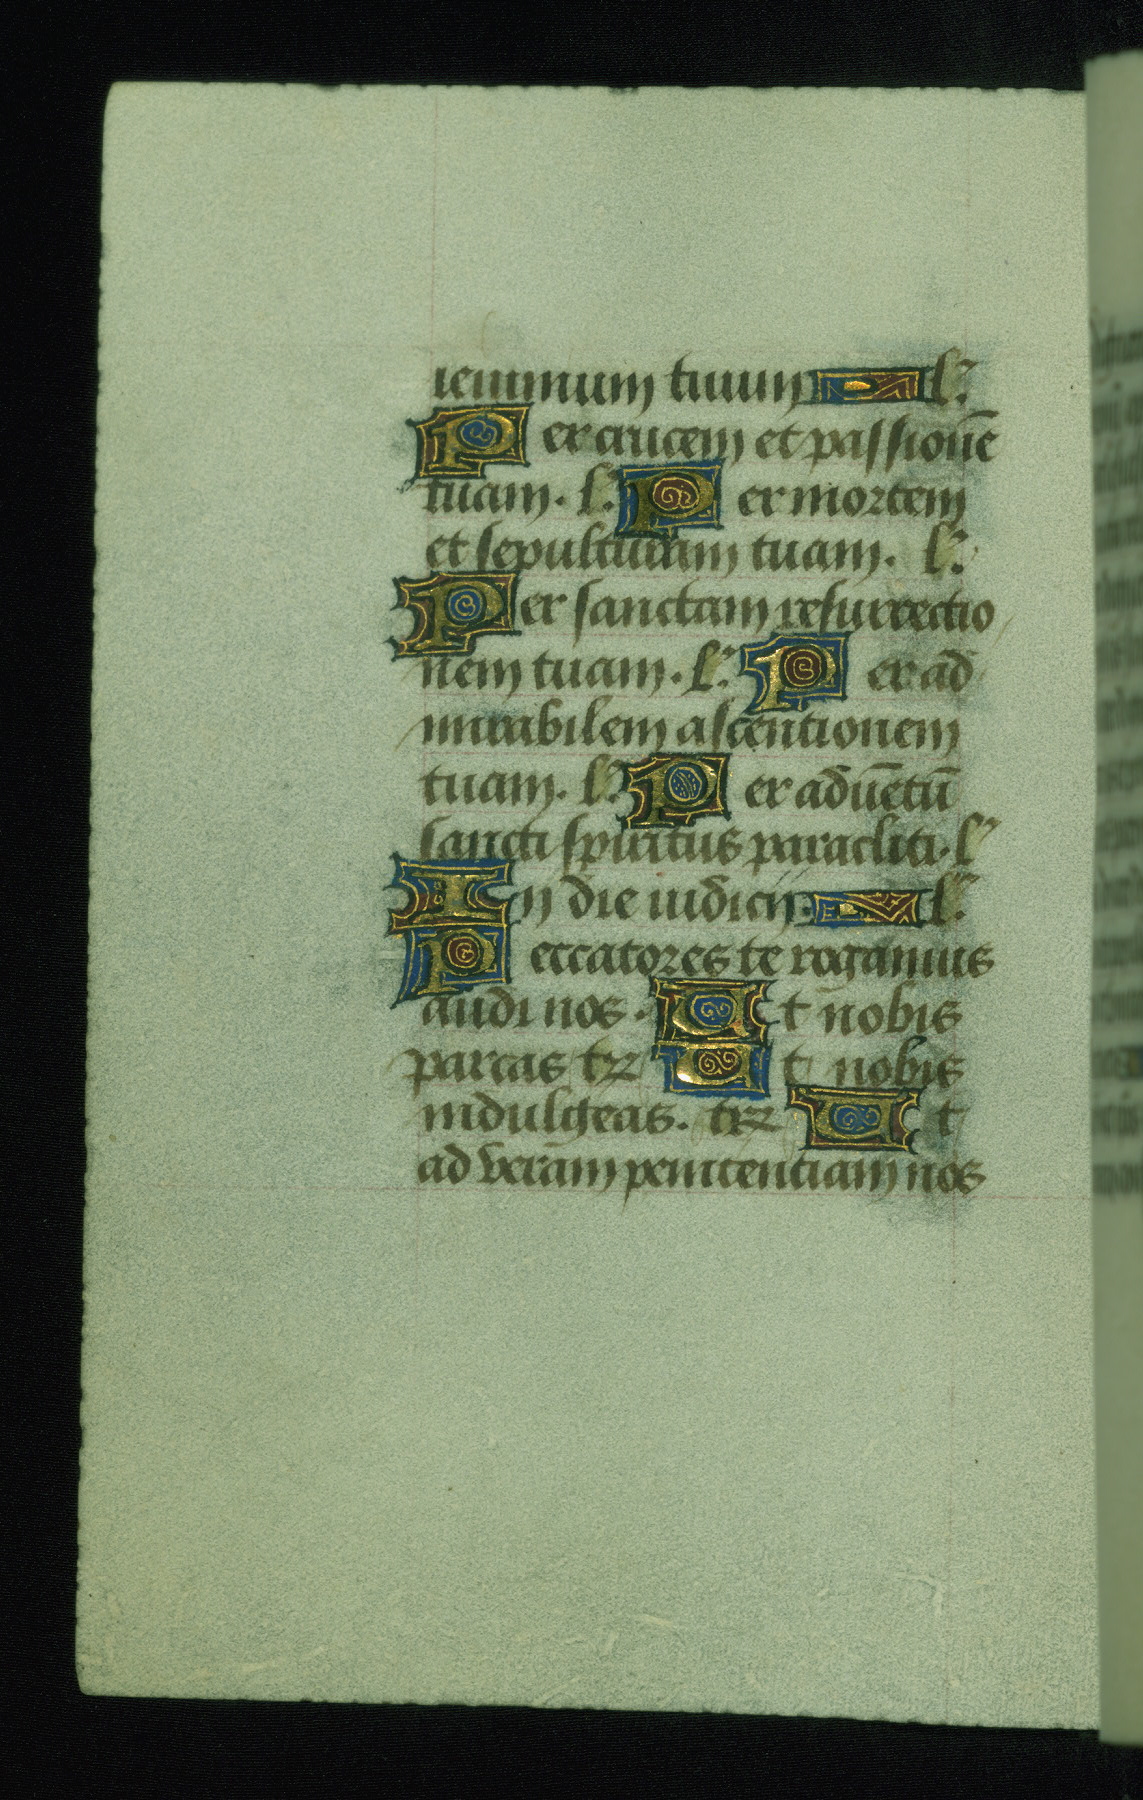 ieiunium tuum l'.
Per crucem et passionē
tuam. l'. Per mortem
et sepulturam tuam. l'.
Per sanctam resurrectio
nem tuam. l'. Per ad
mirabilem ascentionem
tuam. l'. Per aduētū
sancti spiritus paracliti. l'
In die iudicij. l'.
Peccatores te rogamus
audi nos. Ut nobis
parcas tꝛ Ut nobis
indulgeas. tꝛꝛ Ut
ad veram penitentiam nos